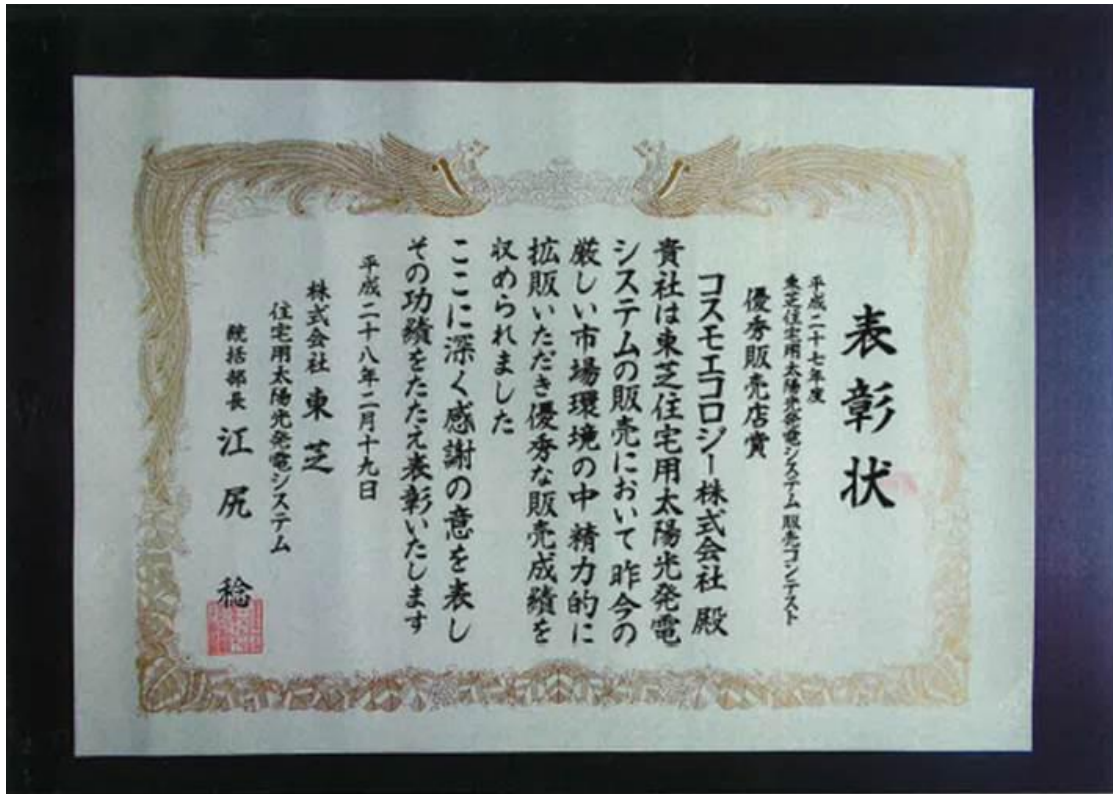 表彰状
平成二十七年度
東芝住宅用太陽光発電システム 販売コンテスト
優秀販売店賞
コスモエコロジー株式会社 殿
貴社は東芝住宅用太陽光発電
システムの販売において昨今の
厳しい市場環境の中精力的に
拡販いただき優秀な販売成績を
収められました
ここに深く感謝の意を表し
その功績をたたえ表彰いたします
平成二十八年二月十九日
株式会社 東芝
住宅用太陽光発電システム
統括部長 江尻 稔